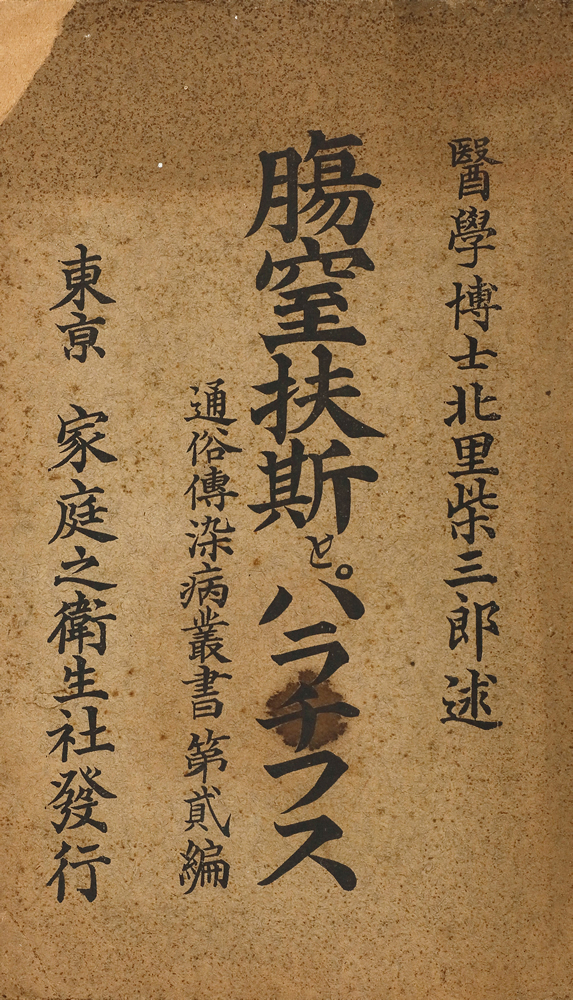 醫學博士北里柴三郎述
腸窒扶斯とパラチフス
通俗傳染病叢書第貳編
東京 家庭之衛生社發行